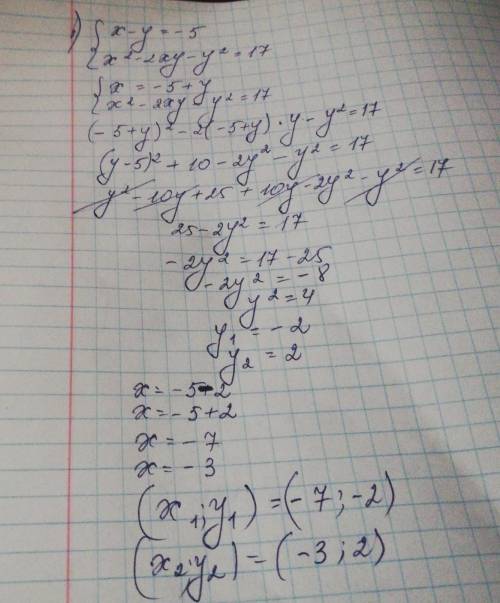 1) { x - y = -5
{ x² - 2xy - y² = 17
{ x = -5 + y
{ x² - 2xy - y² = 17
(-5+y)² - 2(-5+y) · y - y² = 17
(y-5)² + 10 - 2y² - y² = 17
y² - 10y + 25 + 10y - 2y² - y² = 17
25 - 2y² = 17
-2y² = 17 - 25
-2y² = -8
y² = 4
y₁ = -2
y₂ = 2
x = -5-2
x = -5+2
x = -7
x = -3
(x₁; y₁) = (-7; -2)
(x₂; y₂) = (-3; 2)